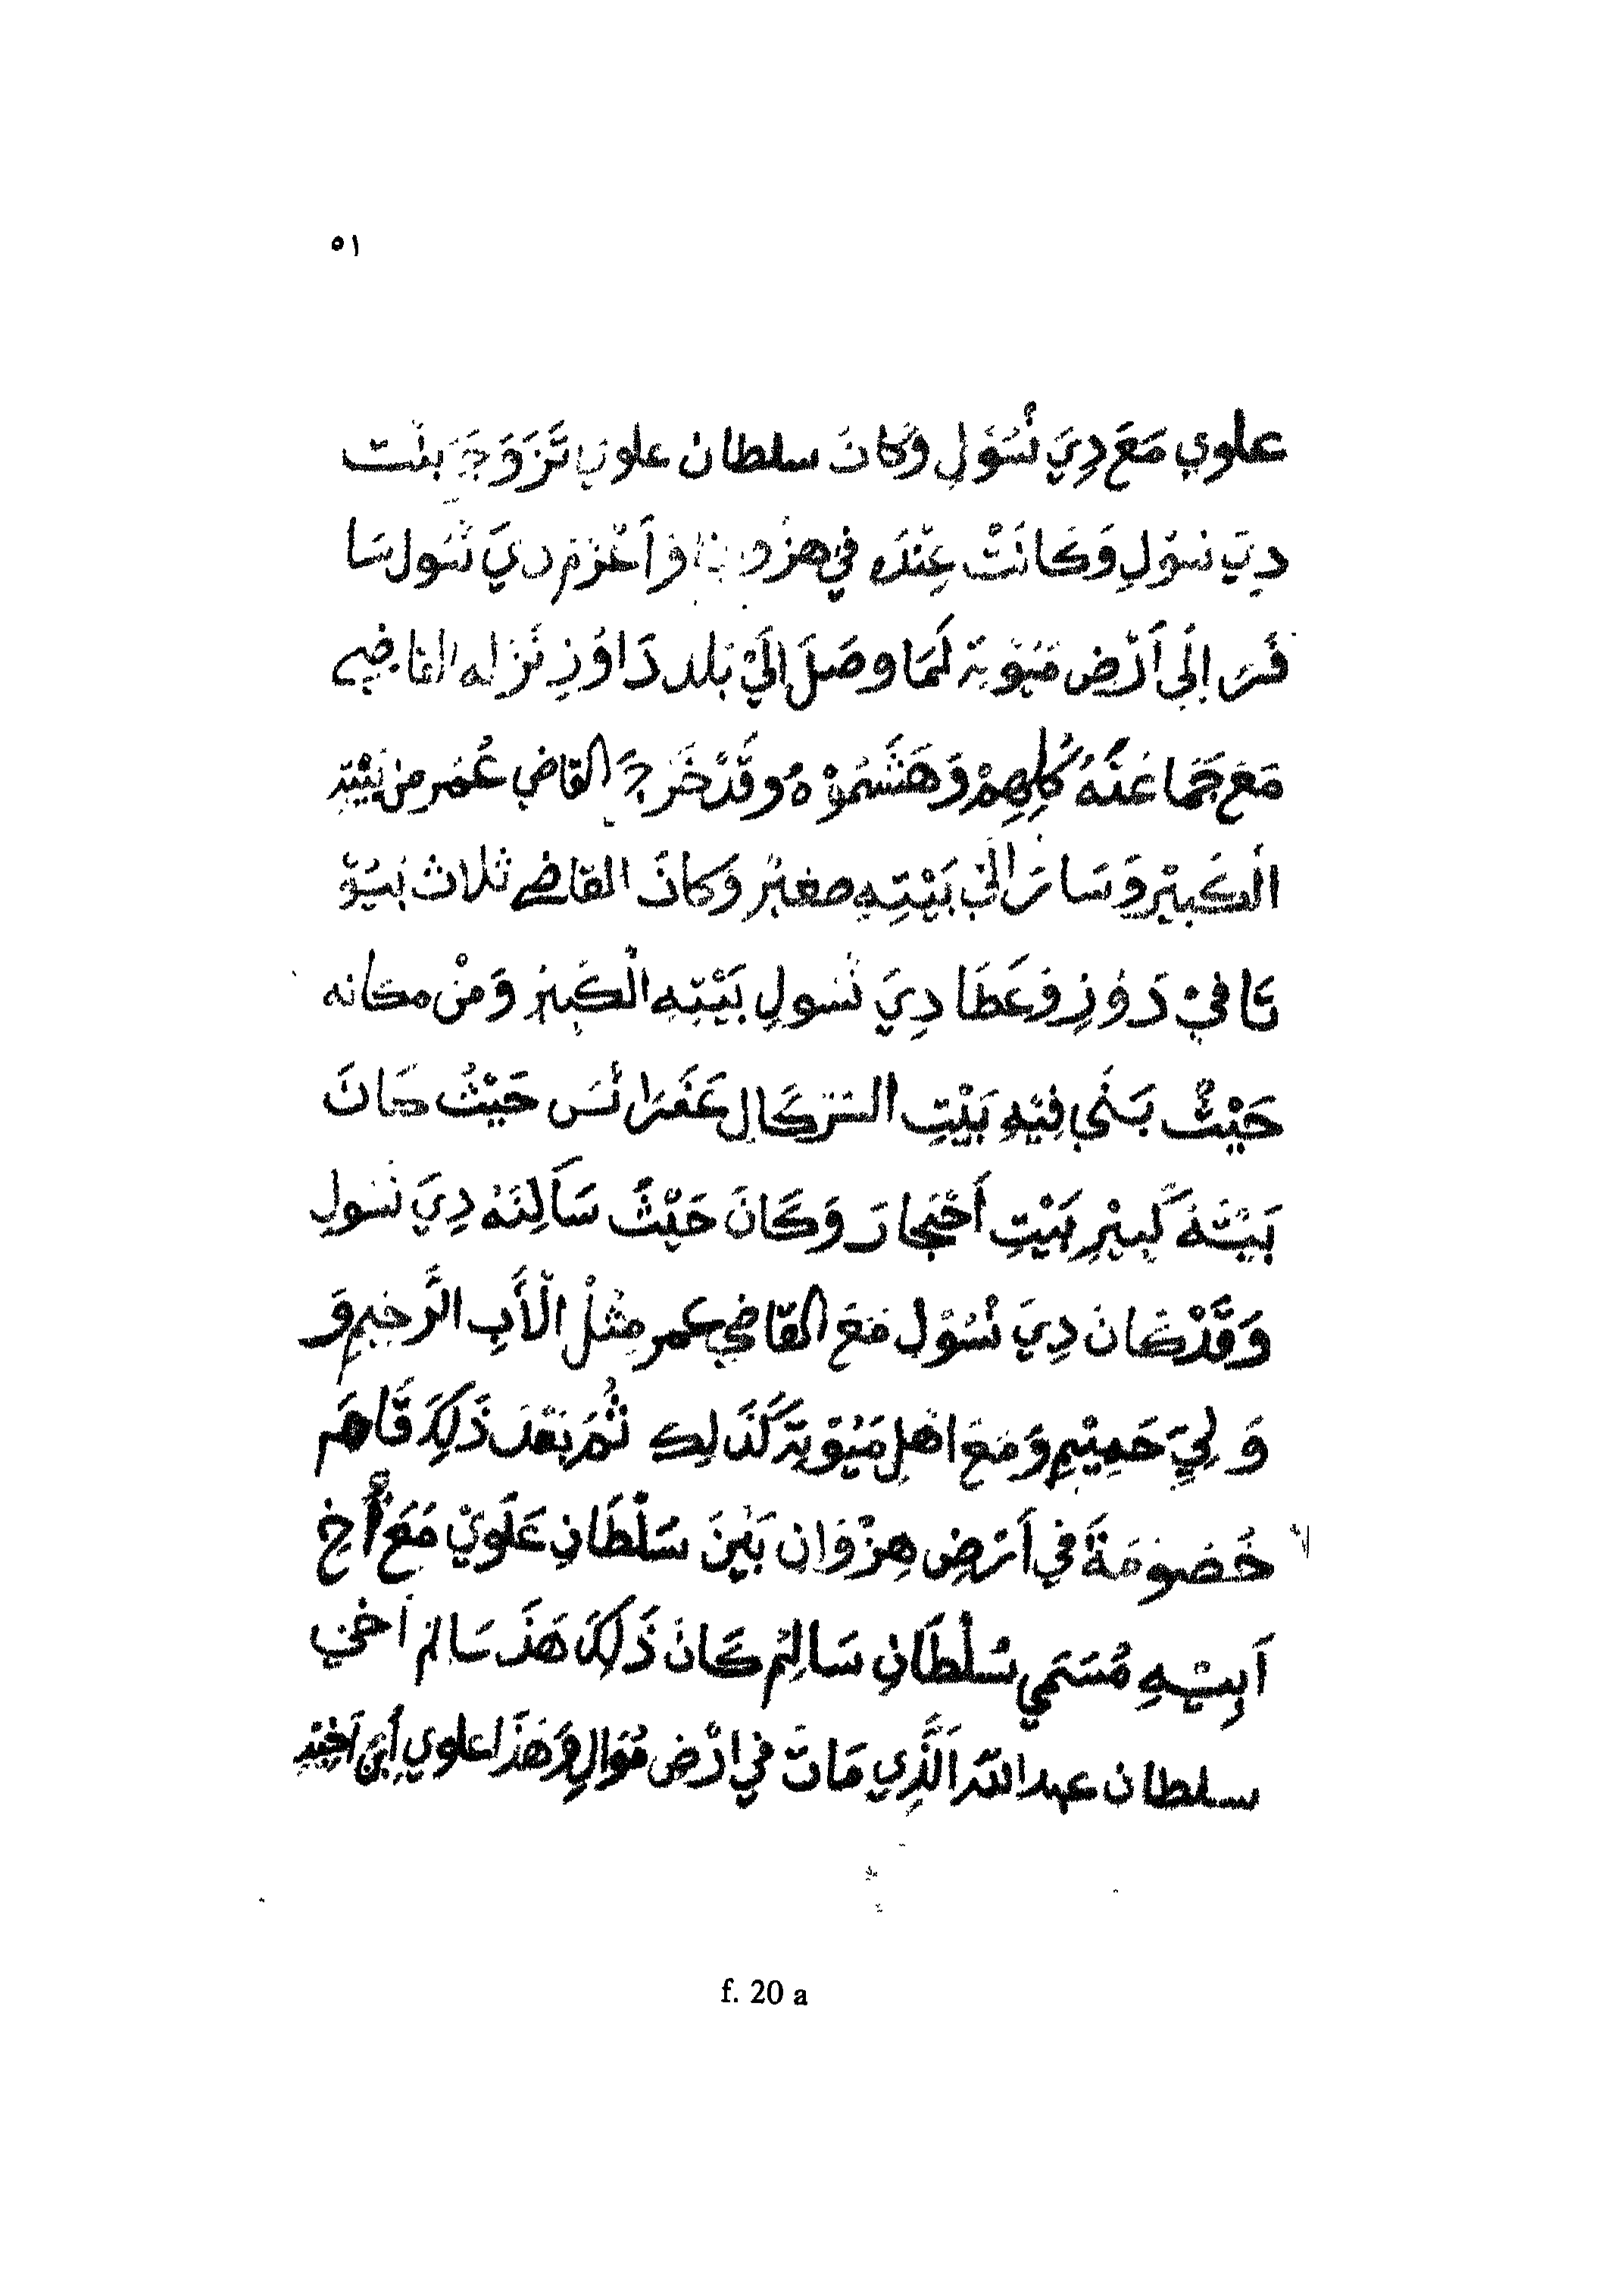 ٥١
علوي مَعَ دِيَ نْسُوْلِ وَكَانَ سلطان علوي تَزَوَجَ بنْت
دِيَ نسوْلِ وَكَانَتْ عِنْدَهُ في هِزْوان وَاَعْزَم دِيَ نْسُولِ سَا
فَرَ اِلَى اَرْضِ مَيُوْتِة لَمَا وصَلَ اِلَيْ بَلد دَاوُزِ نَزَلَه القاضِي
مَعَ جَمَاعَتُهُ كُلِهِمْ وَهَشَمُوْهُ وقَدْ خَرَجَ القاضي عُمَر مِنْ بَيْتِهِ
الْكَبِيْرِ وَسَارَ اِلَيْ بَيْتِهِ صغيْرِ وَكانَ القاضي ثلاث بيُوْ
تا فيْ دَوُزِ وَعَطَا دِيَ نْسُولِ بَيْتِهِ الْكَبِيْرِ وَمِنْ مكانه
حَيْثُ بَنَي فِيْهِ بَيْتِ التَرْكَالِ عَفَرَانْسَ حَيْثُ كَانَ
بَيْتَهُ كَبِيْرِ بَيْتِ اَحْجَارَ وَكَانَ حَيْثُ سَاَلِتَهُ دِيَ نْسُولِ
وَقَدْ كَانَ دِيَ نْسُوْلِ مَعَ القَاضي عمر مِثْلْ الْأَبِ الرَّحِيمِ وَ
وَلِيَ حَمِيْمِ وَمَعَ اهْلِ مَيُوْتِة كَذَالِك ثُمَ بَعْدَ ذَلِكَ قَاهَم
خُصُوْمَةَ في اَرْضِ هِزْوَان بَيْنَ سُلْطَانِ عَلَوِيْ مَعَ أَخِ
اَبِيْهِ مُسَمَي سُلْطَانِ سَالِمْ كَانَ ذَلِكَ هَذَ سَالِمْ اَخي
سلطان عبد اللّه الَّذِي مَاتَ في ارْضِ مُوَالِ وَهَذَا علوي اِبْنِ اَخِيْهِ
f. 20 a